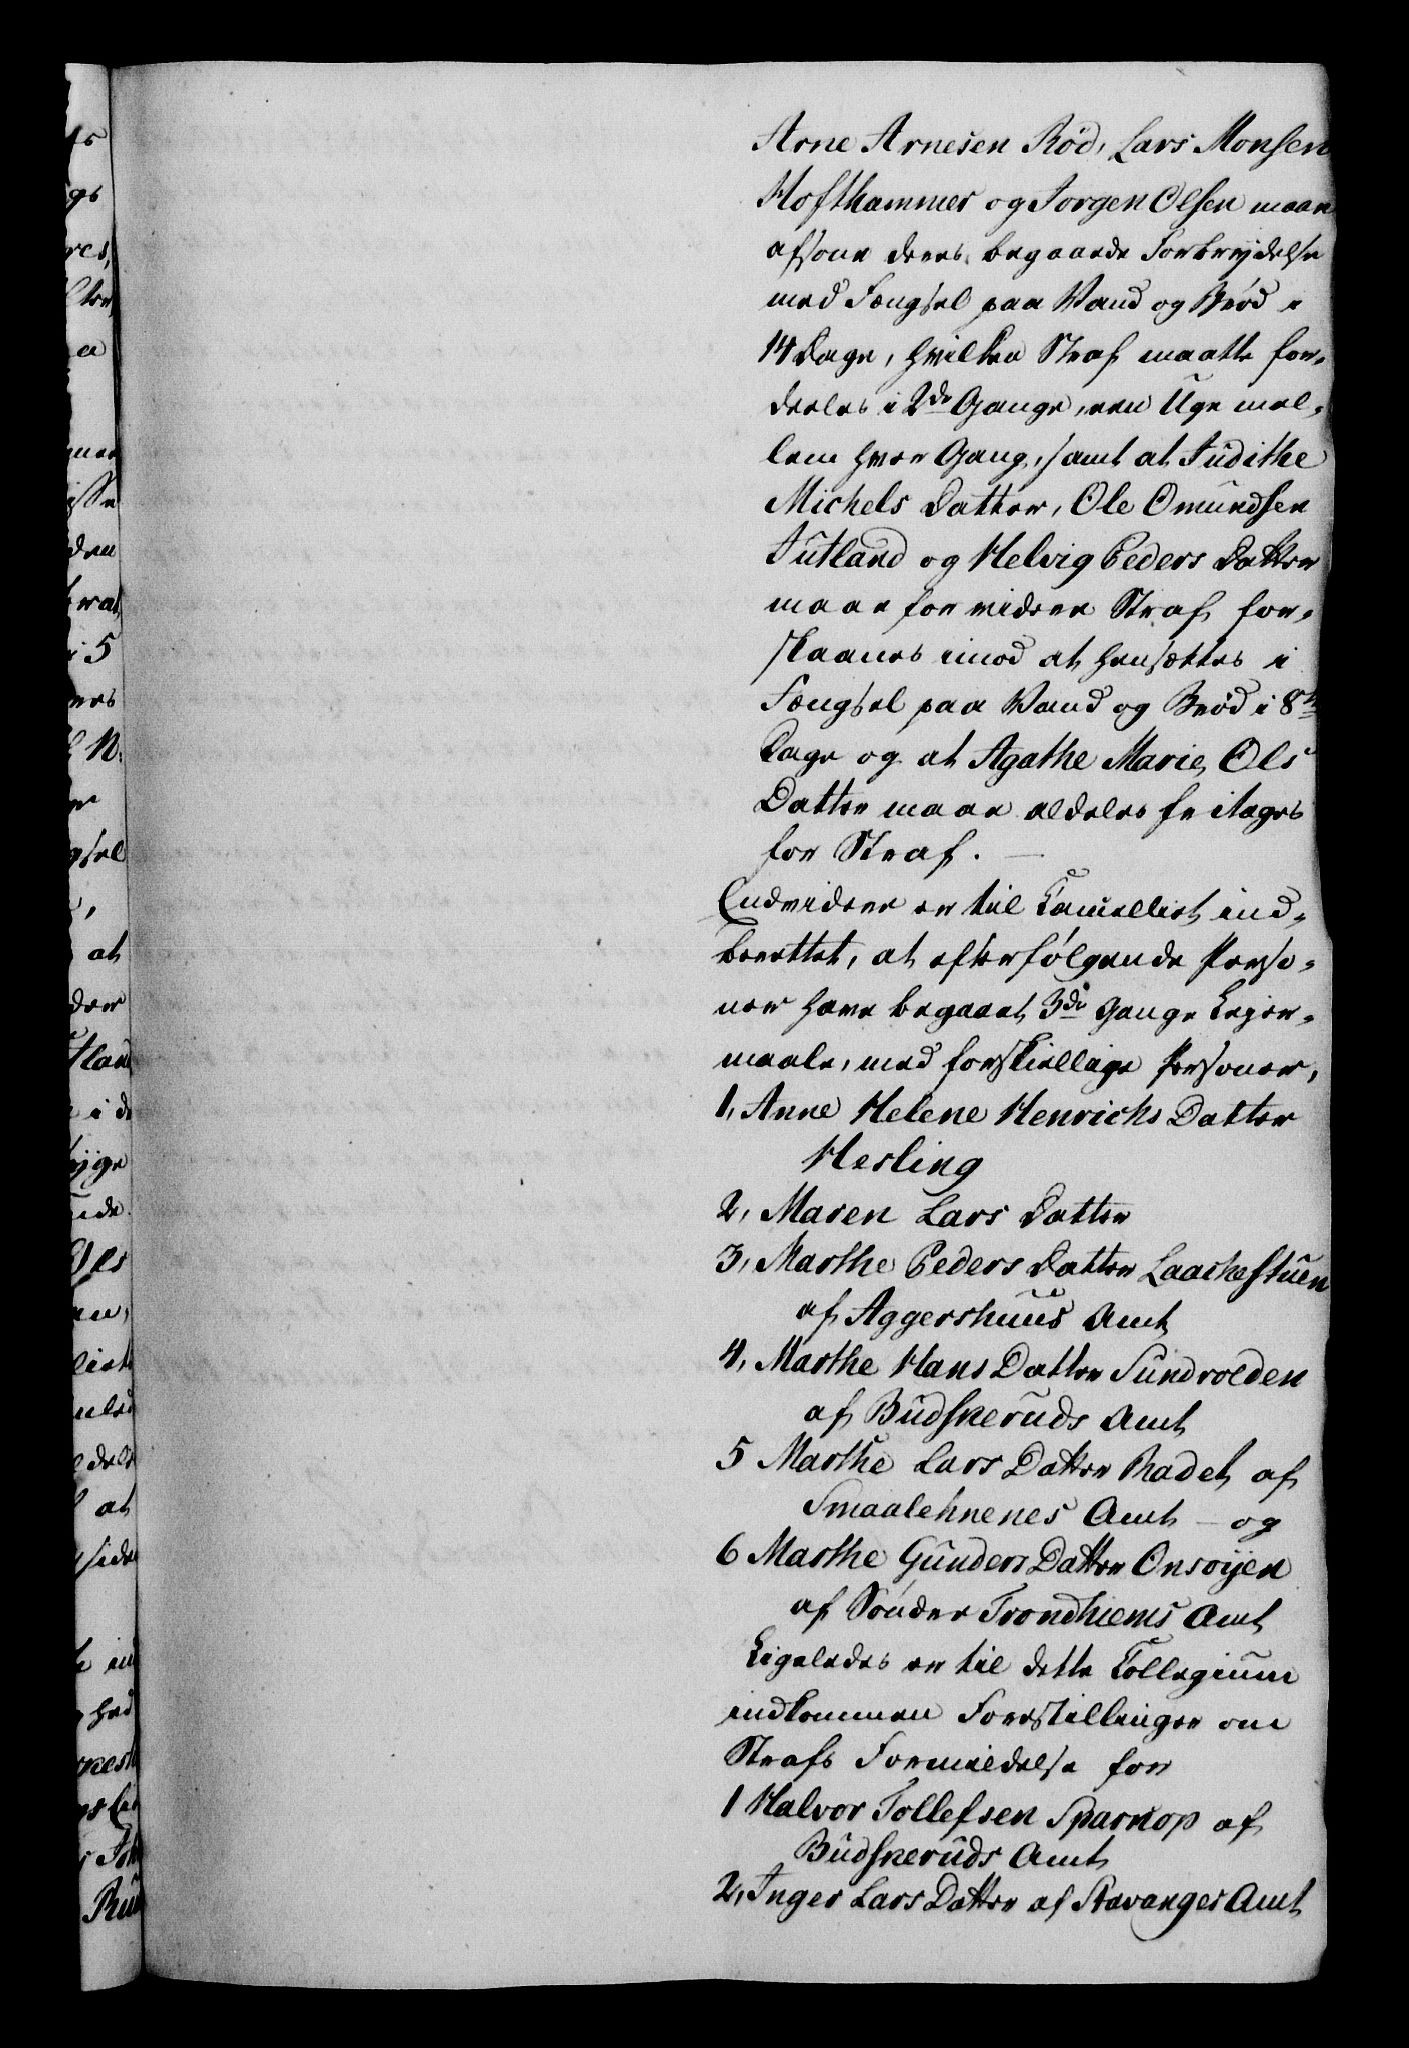 Arne Arnesen Röd, Lars Monsen
Hofthammer og Jorgen Olsen maae
afsone deres begaaede Forbrydelse
med Fængsel paa Vand og Brød i
14 Dage, hvilken Straf maatte for-
deeles i 2de Gange, een Uge mel-
lem hver Gang, samt at Judithe
Michels Datter, Ole Omundsen
Jutland og Helvig Peders Datter
maae for videre Straf for-
skaanes imod at hensættes i
Fængsel paa Vand og Brød i 8te
Dage og at Agathe Marie Ols
Datter maae aldeles fritages
for Straf. —
Endvidere er til Cancelliet ind-
berettet, at efterfølgende Perso-
ner have begaaet 3de Gange Leier-
maale, med forskiellige Personer,
1, Anne Helene Henrichs Datter
Hesling
2, Maren Lars Datter
3, Marthe Peders Datter Laachestuen
af Aggershuus Amt
4, Marthe Hans Datter Sundvolden
af Budskeruds Amt
5 Marthe Lars Datter Radet af
Smaalehnenes Amt – og
6 Marthe Gunders Datter Onsoijen
af Sönder Trondhiems Amt
Ligeledes er til dette Collegium
indkommen Forestillinger om
Strafs Formildelse for
1 Halvor Tollefsen Sparnop af
Budskeruds Amt
2, Inger Lars Datter af Stavanger Amt